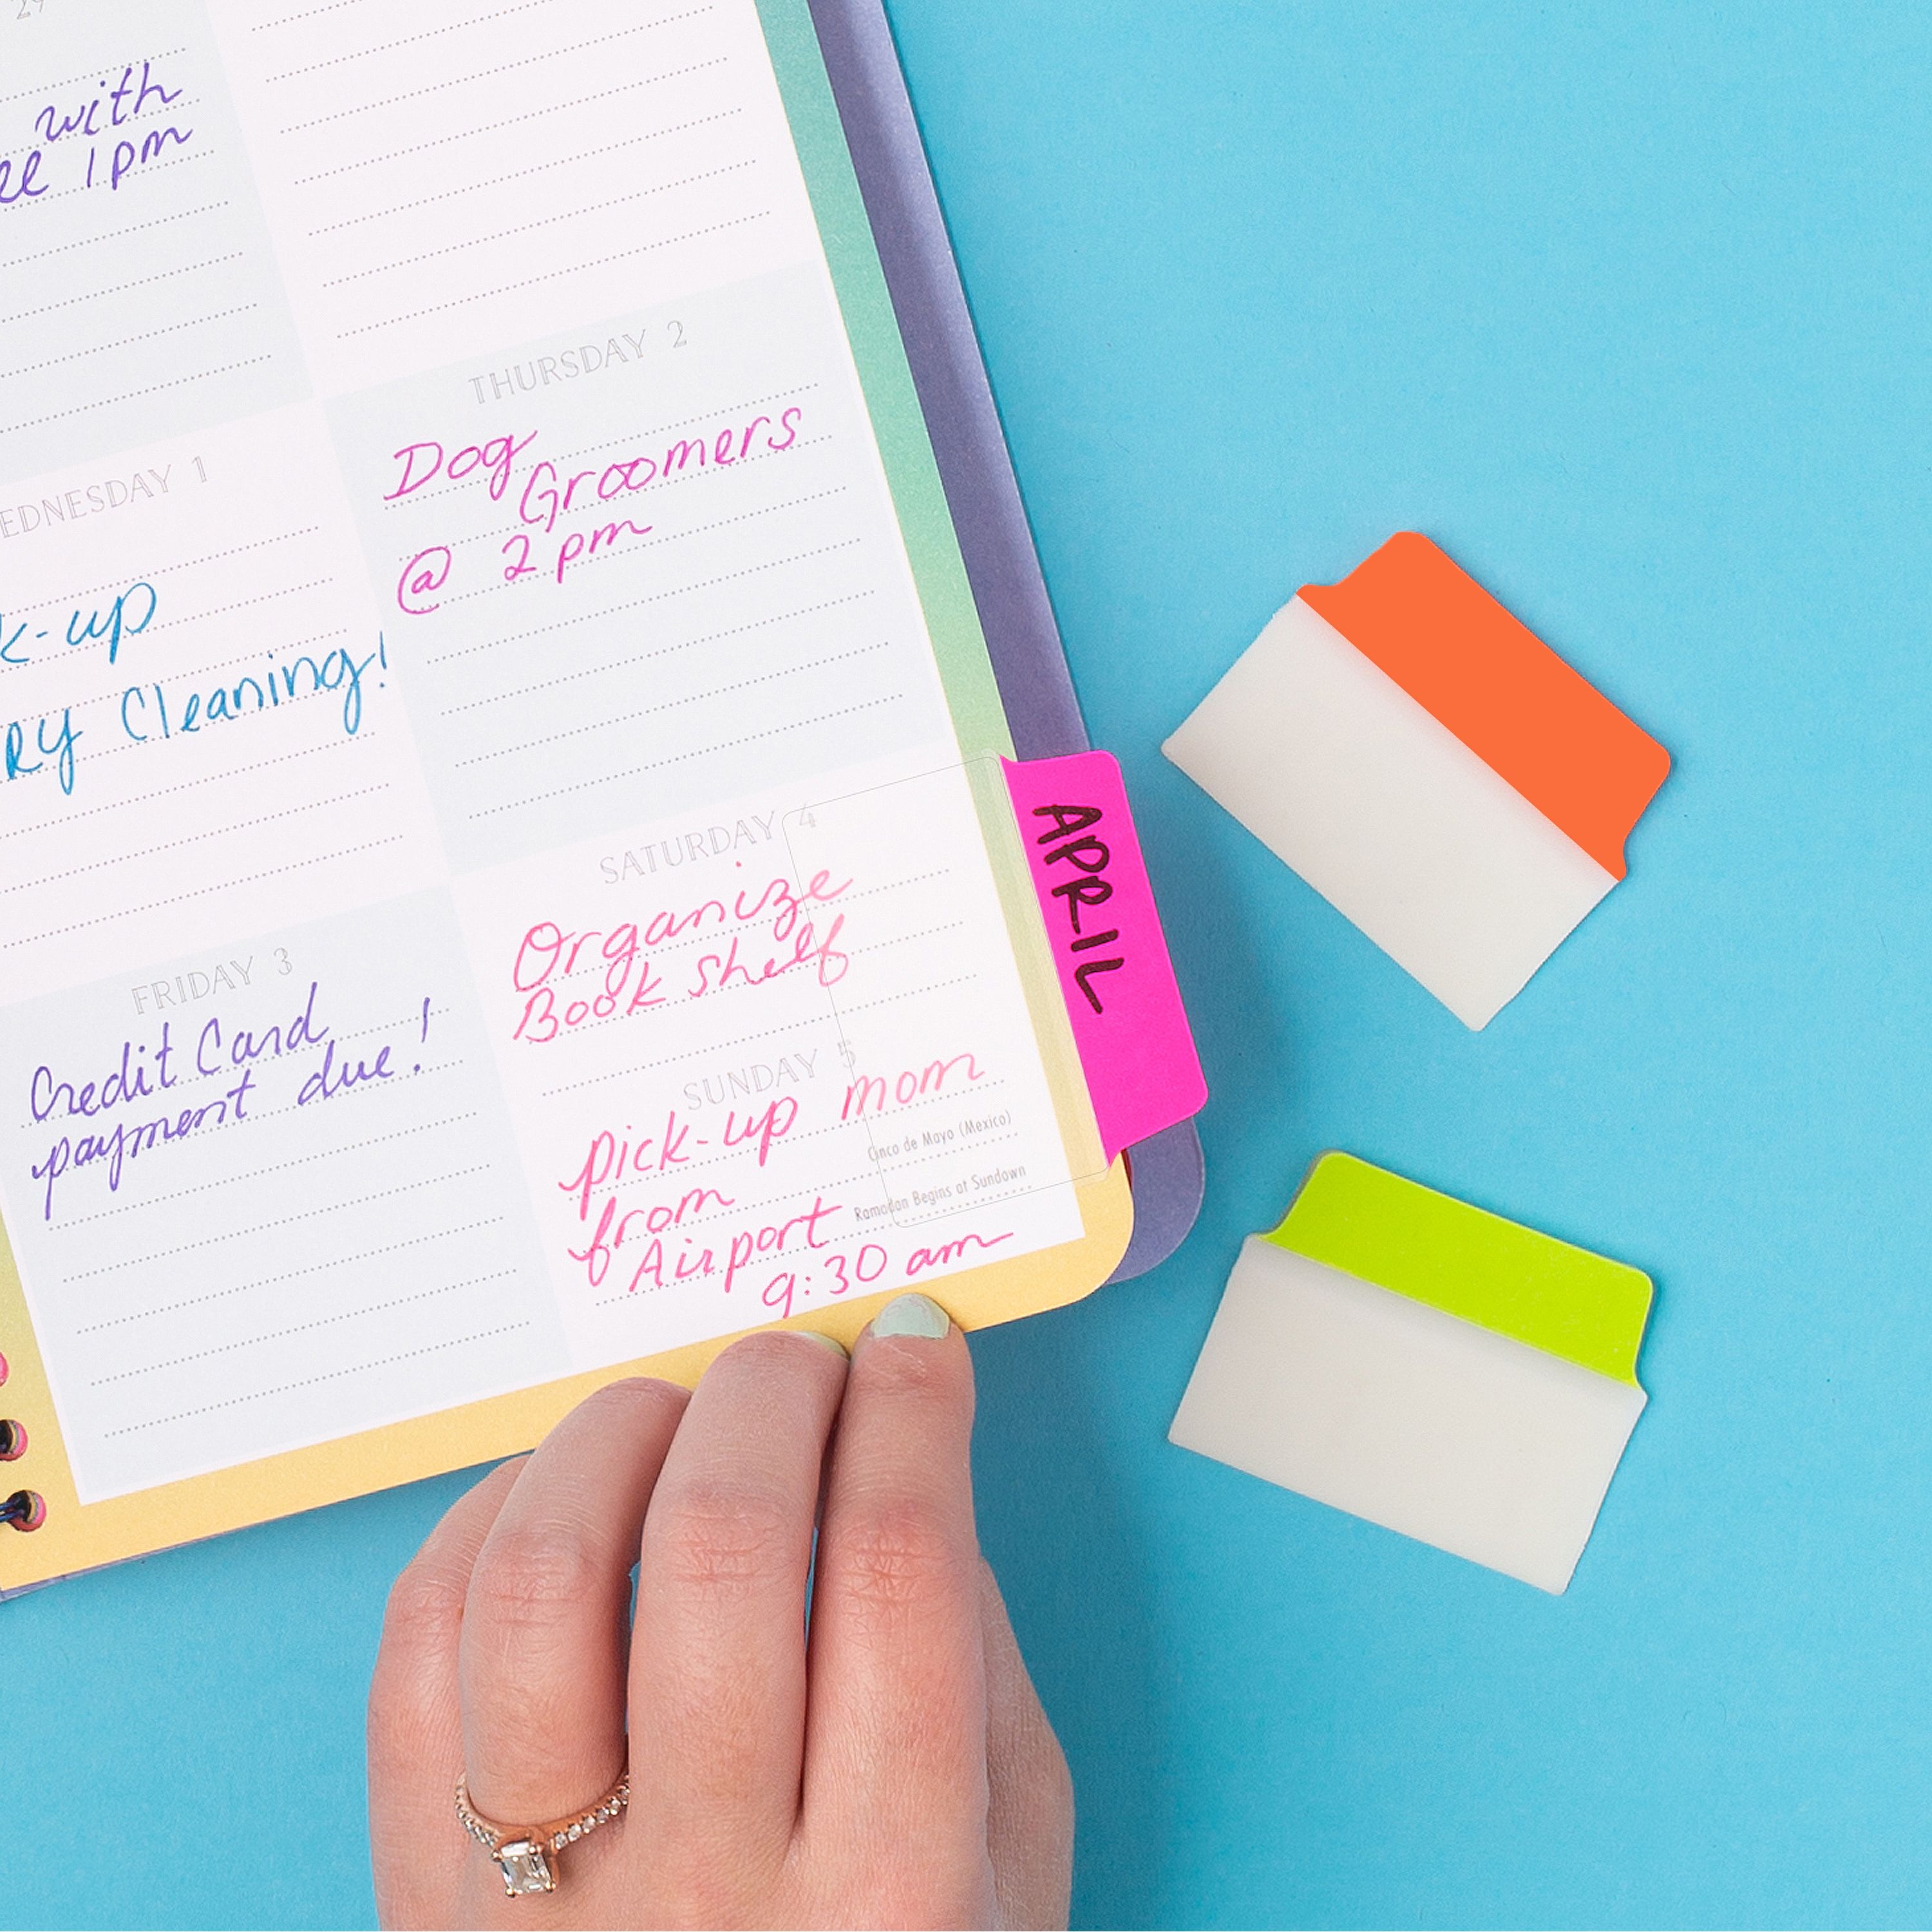 29
with
1pm
THURSDAY 2
Dog
Groomers
@ 2pm
EDNESDAY 1
k-up
RY Cleaning!
SATURDAY 4
Organize
Book shelf
SUNDAY 5
pick-up mom
from
Airport
9:30 am
Cinco de Mayo (Mexico)
Ramadan Begins at Sundown
FRIDAY 3
Credit Card
payment due!
APRIL